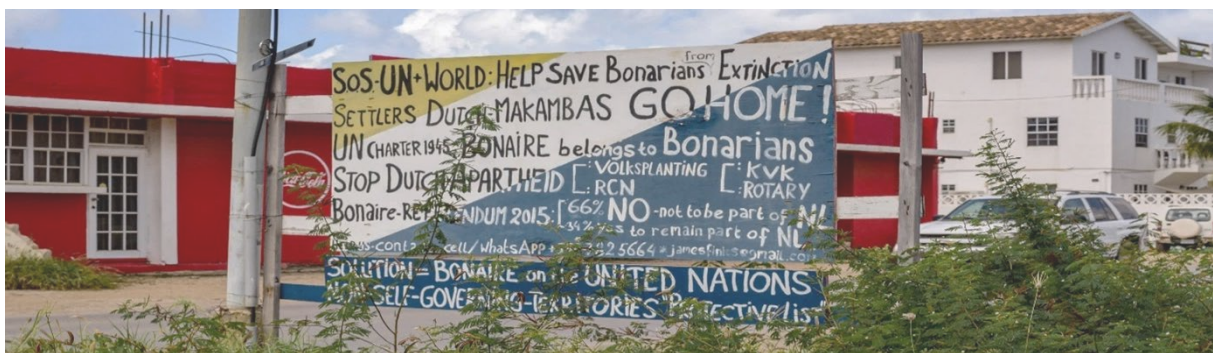 SOS-UN+WORLD: HELP SAVE Bonarians from EXTINCTION
SETTLERS DUTCH-MAKAMBAS GO HOME!
UN CHARTER 1945: BONAIRE belongs to Bonarians
STOP DUTCH APARTHEID [: VOLKSPLANTING [: KVK
[: RCN [: ROTARY
Bonaire-REFERENDUM 2015: [66% NO -not to be part of NL
34% yes to remain part of NL
cell/WhatsApp
SOLUTION = BONAIRE on the UNITED NATIONS
NON SELF-GOVERNING-TERRITORIES "Protective list"
Coca-Cola